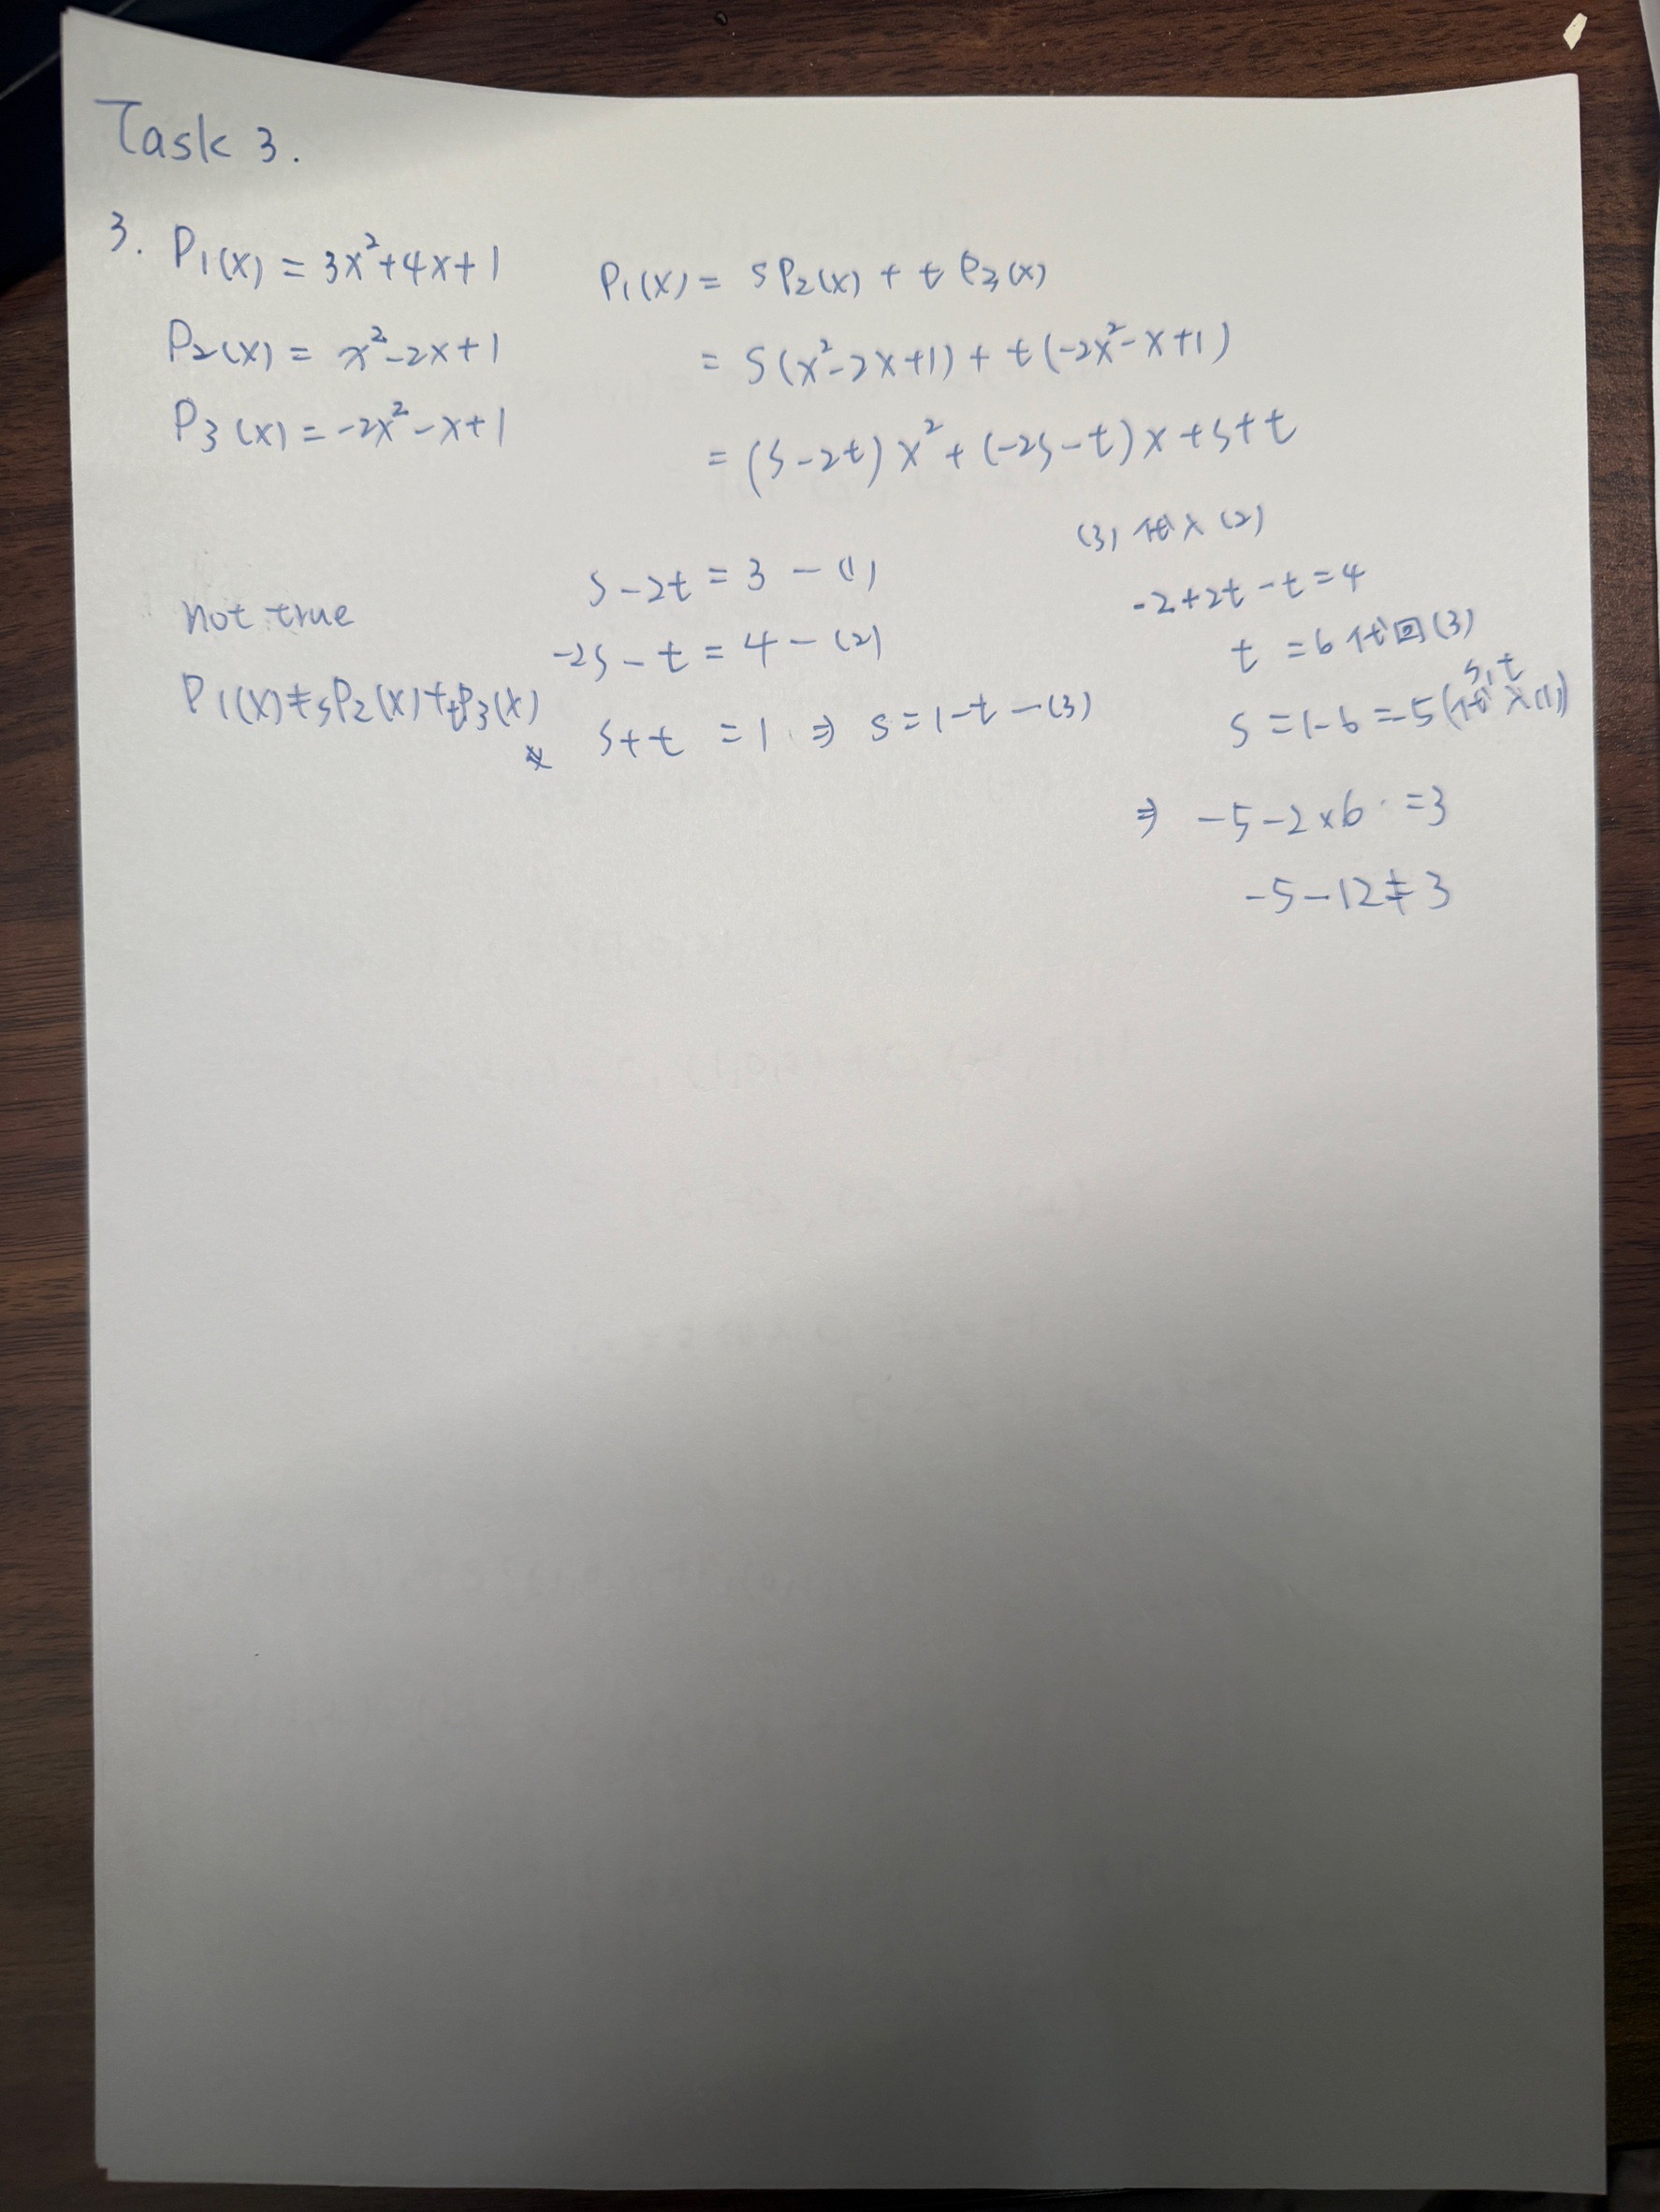 Task 3.
3. P₁(x) = 3x²+4x+1
P₂(x) = x²-2x+1
P₃(x) = -2x²-x+1
P₁(x) = sP₂(x) + tP₃(x)
= s(x²-2x+1) + t(-2x²-x+1)
= (s-2t)x² + (-2s-t)x + s+t
s-2t = 3 -(1)
-2s-t = 4 -(2)
s+t = 1 ⇒ s=1-t -(3)
(3) 代入 (2)
-2+2t-t=4
t = 6 代回(3)
s = 1-6 = -5 (s,t 代入(1))
⇒ -5-2×6 = 3
-5-12≠3
not true
P₁(x)≠sP₂(x)+tP₃(x)